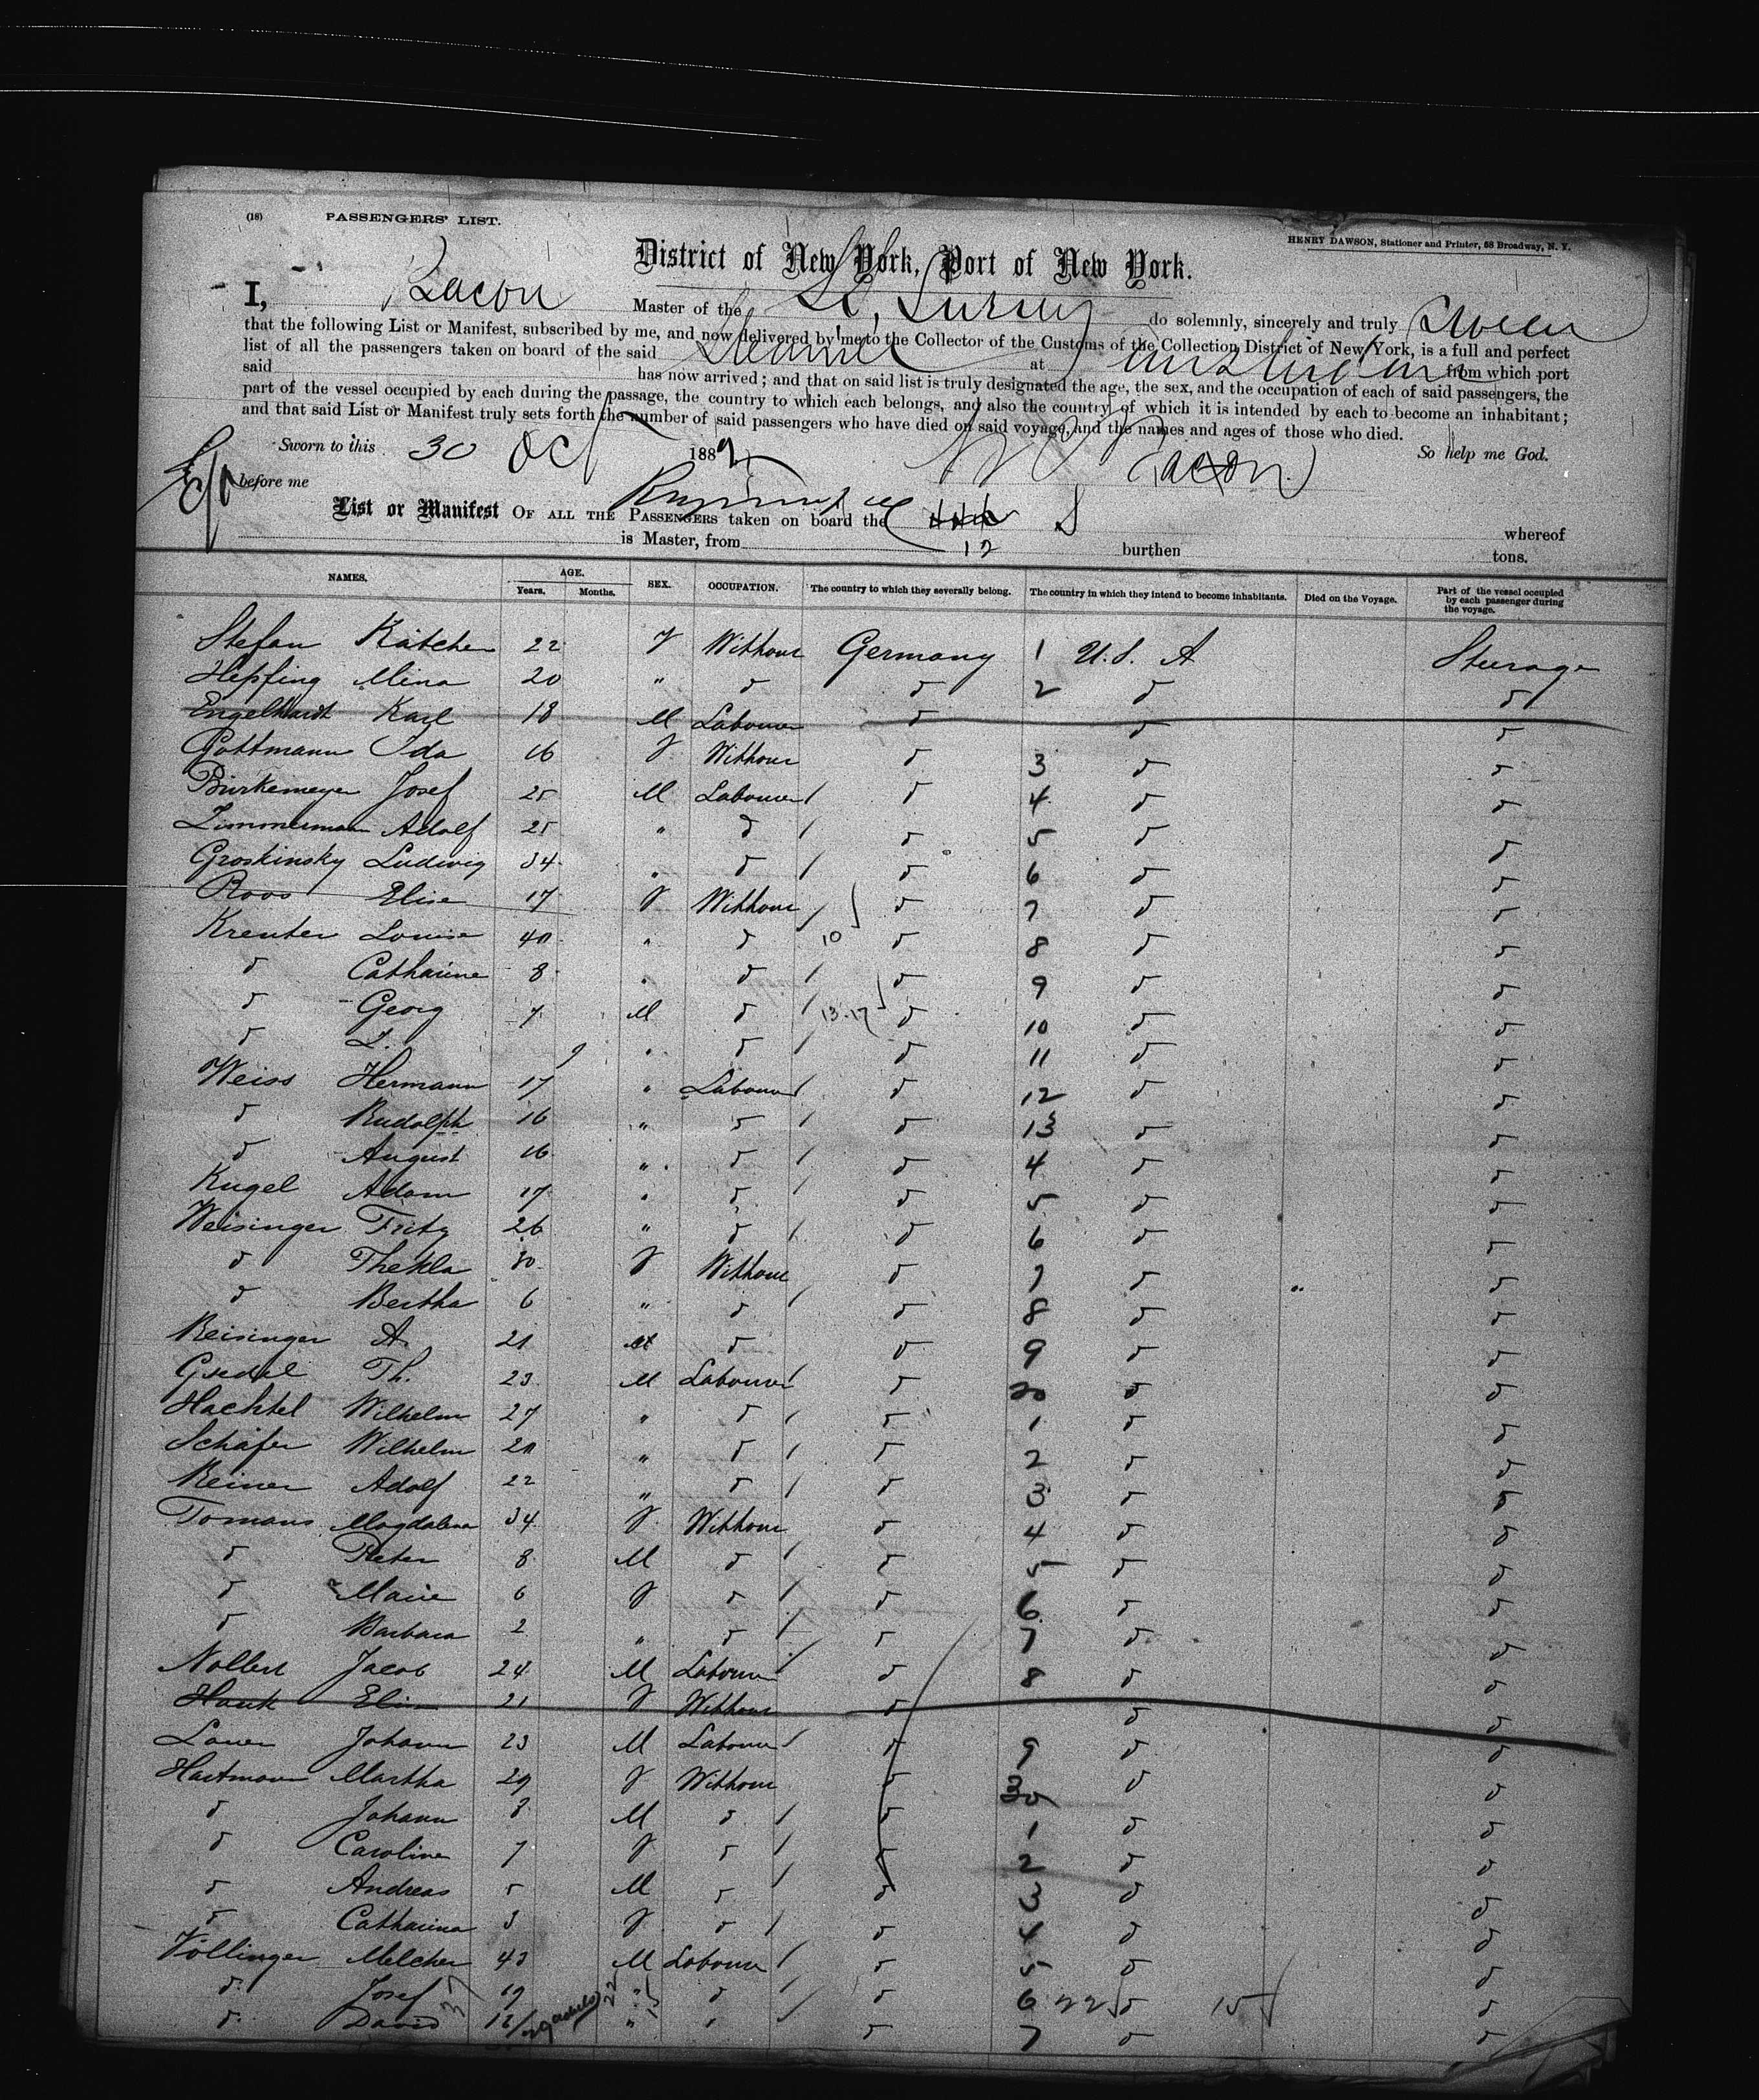 (18) PASSENGERS' LIST.
HENRY DAWSON, Stationer and Printer, 58 Broadway, N. Y.
District of New York, Port of New York.
I, Bacon Master of the SS. do solemnly, sincerely and truly Swear
that the following List or Manifest, subscribed by me, and now delivered by me to the Collector of the Customs of the Collection District of New York, is a full and perfect
list of all the passengers taken on board of the said Steamer at Amsterdam from which port
said has now arrived; and that on said list is truly designated the age, the sex, and the occupation of each of said passengers, the
part of the vessel occupied by each during the passage, the country to which each belongs, and also the country of which it is intended by each to become an inhabitant;
and that said List or Manifest truly sets forth the number of said passengers who have died on said voyage, and the names and ages of those who died.
Sworn to this 30 Oct 188 Bacon So help me God.
before me
List or Manifest OF ALL THE PASSENGERS taken on board the S whereof
is Master, from 12 burthen tons.
NAMES. AGE. Years. Months. SEX. OCCUPATION. The country to which they severally belong. The country in which they intend to become inhabitants. Died on the Voyage. Part of the vessel occupied by each passenger during the voyage.
Stefan Kätchen 22 F Without Germany 1 U.S. A Steerage
Hepfing Mina 20 " d d 2 d d
Engelhardt Karl 18 M Labourer d d d
Gottmann Ida 16 F Without d 3 d d
Birkemeyer Josef 25 M Labourer / d 4 d d
Zimmermann Adolf 25 " d / d 5 d d
Groskinsky Ludwig 34 " d / d 6 d d
Roos Elise 17 F Without / d 7 d d
Kreuter Louise 40 " d 10 d 8 d d
d Catharine 8 " d / d 9 d d
d Georg 7 M d / 13-17 d 10 d d
d L. 9 " d / d 11 d d
Weiss Hermann 17 " Labourer / d 12 d d
d Rudolph 16 " d / d 13 d d
d August 16 " d / d 4 d d
Kugel Adam 17 " d / d 5 d d
Weisinger Fritz 26 " d / d 6 d d
d Thekla 30 F Without d 7 d d
d Bertha 6 " d / d 8 d d
Reisinger A. 21 M d d 9 d d
Th. 23 M Labourer / d 20 d d
Hachtel Wilhelm 27 " d / d 1 d d
Schäfer Wilhelm 20 " d / d 2 d d
Reiner Adolf 22 " d / d 3 d d
Tomans Magdalena 34 F Without d 4 d d
d Peter 8 M d / d 5 d d
d Marie 6 F d / d 6 d d
d Barbara 2 " d / d 7 d d
Jacob 24 M Labourer / d 8 d d
Hauk Elise 21 F Without d d d
Lauer Johann 23 M Labourer / d 9 d d
Hartmann Martha 29 F Without d 30 d d
d Johann 8 M d / d 1 d d
d Caroline 7 F d / d 2 d d
d Andreas 5 M d / d 3 d d
d Catharina 3 F d / d 4 d d
Völlinger Melcher 43 M Labourer / d 5 d d
d Josef 19 " d / d 6 22 d 15 d
d David 37 16 / 29 adults 22 " " / d 7 d d